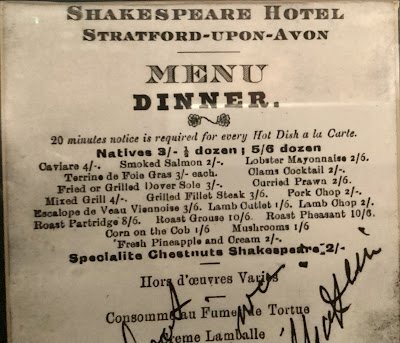 SHAKESPEARE HOTEL
STRATFORD-UPON-AVON
MENU
DINNER.
20 minutes notice is required for every Hot Dish a la Carte.
Natives 3/- ½ dozen ; 5/6 dozen
Caviare 4/-. Smoked Salmon 2/-. Lobster Mayonnaise 2/6.
Terrine de Foie Gras 3/- each. Clams Cocktail 2/-.
Fried or Grilled Dover Sole 3/-. Curried Prawn 2/6.
Mixed Grill 4/-. Grilled Fillet Steak 3/6. Pork Chop 2/-.
Escalope de Veau Viennoise 3/6. Lamb Cutlet 1/6. Lamb Chop 2/.
Roast Partridge 8/6. Roast Grouse 10/6. Roast Pheasant 10/6.
Corn on the Cob 1/6 Mushrooms 1/6
Fresh Pineapple and Cream 2/-.
Specialite Chestnuts Shakespeare 2/-
Hors d'œuvres Varies
Consomme au Fume de Tortue
Creme Lamballe